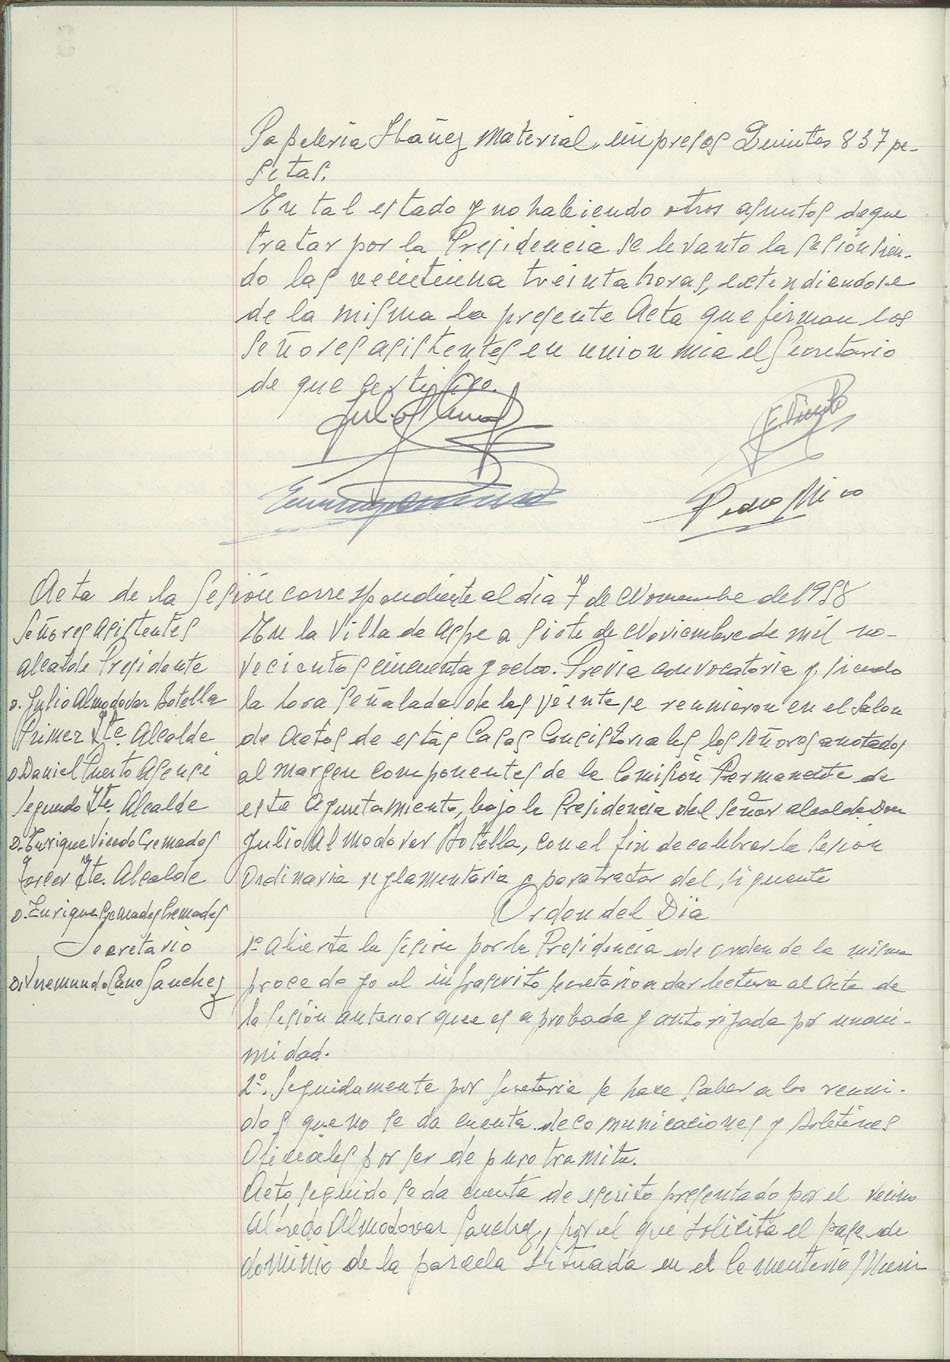 Papeleria Ibáñez material, impresos Quintas 837 pe-
setas.
En tal estado y no habiendo otros asuntos de que
tratar por la Presidencia se levanto la sesión sien-
do las veintiuna treinta horas, extendiendose
de la misma la presente Acta que firman los
Señores asistentes en union mia el Secretario
de que certifico.
Pedro Mico
Acta de la Sesión correspondiente al dia 7 de Noviembre de 1958
Señores Asistentes
Alcalde Presidente
D. Julio Almodovar Botella
Primer Tte. Alcalde
D. Daniel Puerto Asensi
Segundo Tte. Alcalde
D. Enrique Vicedo Cremades
Tercer Tte. Alcalde
D. Enrique Cremades Cremades
Secretario
D. Veremundo Cano Sanchez
En la Villa de Aspe a siete de Noviembre de mil no-
vecientos cincuenta y ocho. Previa convocatoria y siendo
la hora señalada de las veinte se reunieron en el Salon
de Actos de estas Casas Consistoriales los señores anotados
al margen componentes de la Comisión Permanente de
este Ayuntamiento, bajo la Presidencia del Señor Alcalde Don
Julio Almodovar Botella, con el fin de celebrar la Sesión
Ordinaria reglamentaria y para tratar del siguente
Orden del Dia
1º Abierta la sesion por la Presidencia de orden de la misma
procedo yo el infrascrito Secretario a dar lectura al Acta de
la Sesión anterior que es aprobada y autorizada por unani-
midad.
2º. Seguidamente por Secretaria se hace saber a los reuni-
dos que no se da cuenta de comunicaciones y Boletines
Oficiales por ser de puro tramite.
Acto seguido se da cuenta de escrito presentado por el vecino
Alfredo Almodovar Sanchez, por el que solicita el pase de
dominio de la parcela situada en el Cementerio Muni